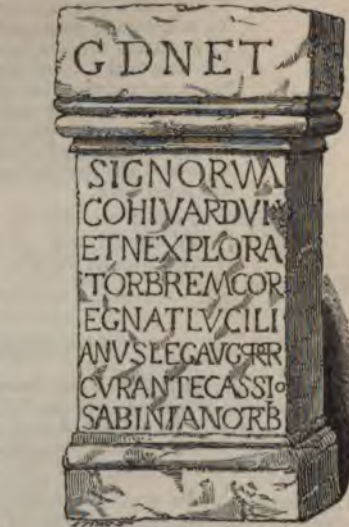 G D N ET
SIGNORVM
COHIVARDVLL
ETNEXPLORA
TORBREMCOR
EGNATLVCILI
ANVSLEGAVGPRPR
CVRANTECASSIO
SABINIANOTRIB